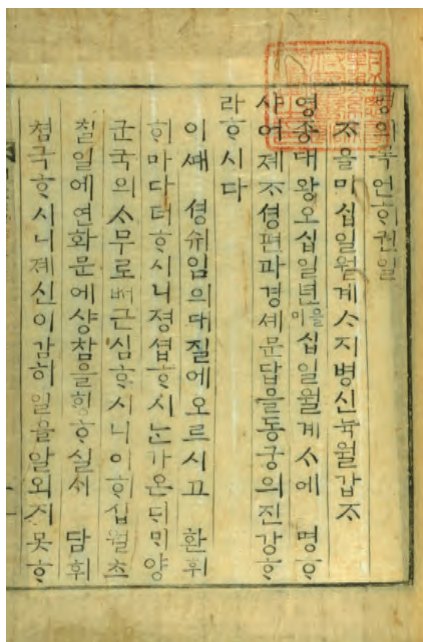 명의록언ᄒᆡ권일
ᄌᆞ을미십일월계ᄉᆞ지병신뉵월갑ᄌᆞ
영종대왕오십일년을미십일월계ᄉᆞ에 명ᄒᆞ
샤어졔ᄌᆞ셩편과경셰문답을동궁의진강ᄒᆞ
라ᄒᆞ시다
이ᄣᅢ 셩슈임의대질에오ᄅᆞ시고 환휘
ᄒᆡ마다더ᄒᆞ시니졍셥ᄒᆞ시ᄂᆞᆫ가온ᄃᆡᄆᆡ양
군국의ᄉᆞ무로ᄡᅥ근심ᄒᆞ시니이ᄒᆡ십월초
칠일에연화문에샹참을ᄒᆡᆼᄒᆞ실ᄉᆡ 담휘
쳠극ᄒᆞ시니졔신이감히일을알외지못ᄒᆞ